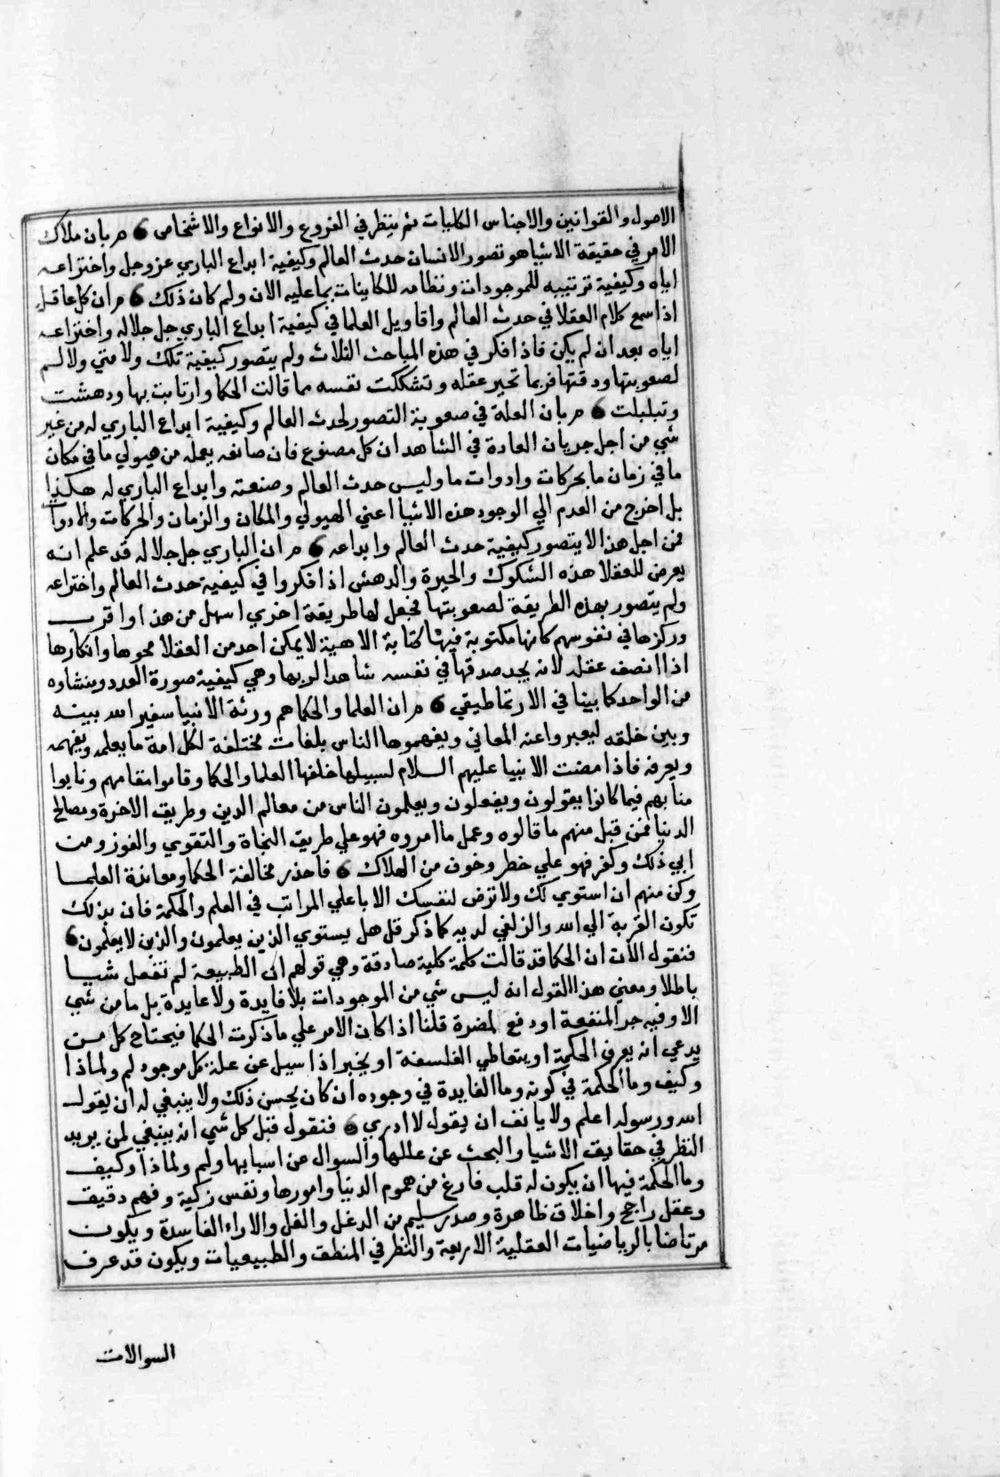 الاصول والقوانين والاجناس الكليات ثم ينظر في الفروع والانواع والاشخاص 6 مر بان ملاك
الامر في حقيقة الاشيا هو تصور الانسان حدث العالم وكيفية ابداع الباري عز وجل واختراعه
اياه وكيفية ترتيبه للموجودات ونظامه للكاينات بما عليه الان ولم كان ذلك 6 مر ان كل عاقل
اذا سمع كلام العقلا في حدث العالم واقاويل العلما في كيفية ابداع الباري جل جلاله واختراعه
اياه بعد ان لم يكن فاذا فكر في هذه المباحث الثلاث ولم يتصور كيفية تلك ولا متي ولا لم
لصعوبتها ودقتها فربما تحير عقله وتشككت نفسه مما قالت الحكما وارتابت بها ودهشت
وتبلبلت 6 مر بان العلة في صعوبة التصور لحدث العالم وكيفية ابداع الباري له من غير
شي من اجل جريان العادة في الشاهد ان كل مصنوع فان صانعه يعمله من هيولي ما في مكان
ما في زمان ما بحركات وادوات ما وليس حدث العالم وصنعته وابداع الباري له هكذا
بل اخرج من العدم الي الوجود هذه الاشيا اعني الهيولي والمكان والزمان والحركات والادوات
فمن اجل هذا لا يتصور كيفية حدث العالم وابداعه 6 مر ان الباري جل جلاله قد علم انه
يعرض للعقلا هذه الشكوك والحيرة والدهش اذا فكروا في كيفية حدث العالم واختراعه
ولم يتصور بهذه الطريقة لصعوبتها فجعل لها طريقة اخري اسهل من هذا واقرب
وركزها في نفوسهم كانها مكتوبة فيها كتابة الاهية لا يمكن احد من العقلا محوها وانكارها
اذا انصف عقله لانه يجد صدقها في نفسه شاهدا لربها وهي كيفية صورة العدد ومنشاوه
من الواحد كما بينا في الارتماطيقي 6 مر ان العلما والحكما هم ورثة الانبيا سفير الله بينه
وبين خلقه ليعبروا عنه المعاني ويفهموها الناس بلغات مختلفة لكل امة ما يعلمه ويفهمه
ويعرفه فاذا مضت الانبيا عليهم السلام لسبيلها خلفها العلما والحكما وقاموا مقامهم ونابوا
منابهم فيما كانوا يقولون ويفعلون ويعلمون الناس من معالم الدين وطريق الاخرة ومصالح
الدنيا فمن قبل منهم ما قالوه وعمل ما امروه فهو علي طريق النجاة والتقوي والفوز ومن
ابي ذلك وكفر فهو علي خطر وخوف من الهلاك 6 فاحذر مخالفة الحكما ومعاندة العلما
وكن منهم ان استوي لك ولا ترض لنفسك الا باعلي المراتب في العلم والحكمة فان بذلك
تكون القربة الي الله والزلفي لديه كما ذكر قل هل يستوي الذين يعلمون والذين لا يعلمون 6
فنقول الان ان الحكما قد قالت كلمة كلية صادقة وهي قولهم ان الطبيعة لم تفعل شيا
باطلا ومعني هذا القول انه ليس شي من الموجودات بلا فايدة ولا عايدة بل ما من شي
الا وفيه جر المنفعة او دفع لمضرة قلنا اذا كان الامر علي ما ذكرت الحكما فيحتاج كل من
يدعي انه يعرف الحكمة او يتعاطي الفلسفة او يخبر اذا سيل عن علة كل موجود لم ولماذا
وكيف وما الحكمة في كونه وما الفايدة في وجوده ان كان يحسن ذلك ولا ينبغي له ان يقول
الله ورسوله اعلم ولا يانف ان يقول لا ادري 6 فنقول قبل كل شي انه ينبغي لمن يريد
النظر في حقايق الاشيا والبحث عن عللها والسوال من اسبابها ولم ولماذا وكيف
وما الحكمة فيها ان يكون له قلب فارغ من هموم الدنيا وامورها ونفس زكية وفهم دقيق
وعقل راجح واخلاق طاهرة وصدر سليم من الدغل والغل والاراء الفاسدة ويكون
مرتاضا بالرياضيات العقلية الاربعة والنظر في المنطق والطبيعيات ويكون قد عرف
السوالات